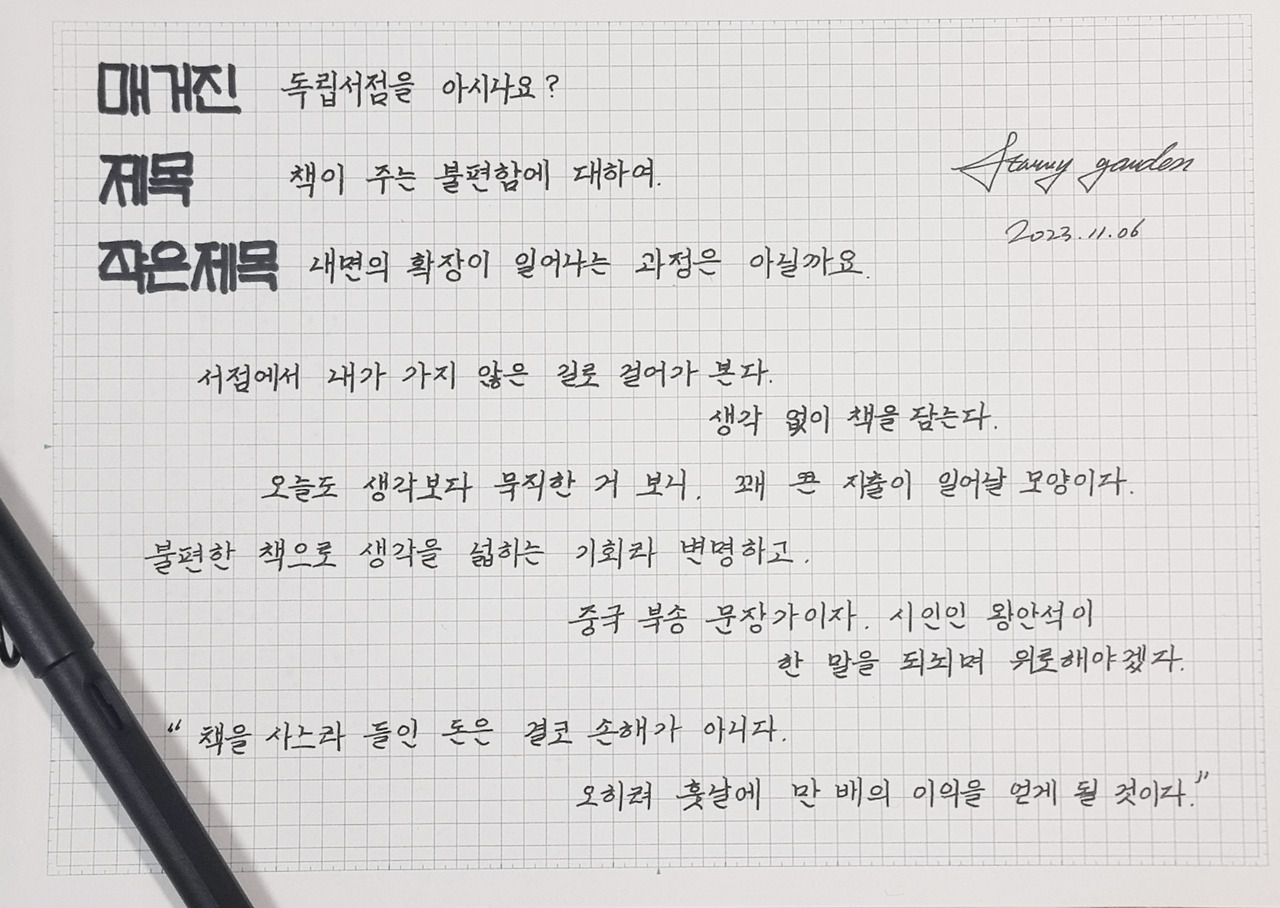 매거진 독립서점을 아시나요?
제목 책이 주는 불편함에 대하여.
Starry garden
2023.11.06
작은제목 내면의 확장이 일어나는 과정은 아닐까요.
서점에서 내가 가지 않은 길로 걸어가 본다.
생각 없이 책을 담는다.
오늘도 생각보다 묵직한 거 보니, 꽤 큰 지출이 일어날 모양이다.
불편한 책으로 생각을 넓히는 기회라 변명하고,
중국 북송 문장가이자, 시인인 왕안석이
한 말을 되뇌며 위로해야겠다.
“책을 사느라 들인 돈은 결코 손해가 아니다.
오히려 훗날에 만 배의 이익을 얻게 될 것이다.”